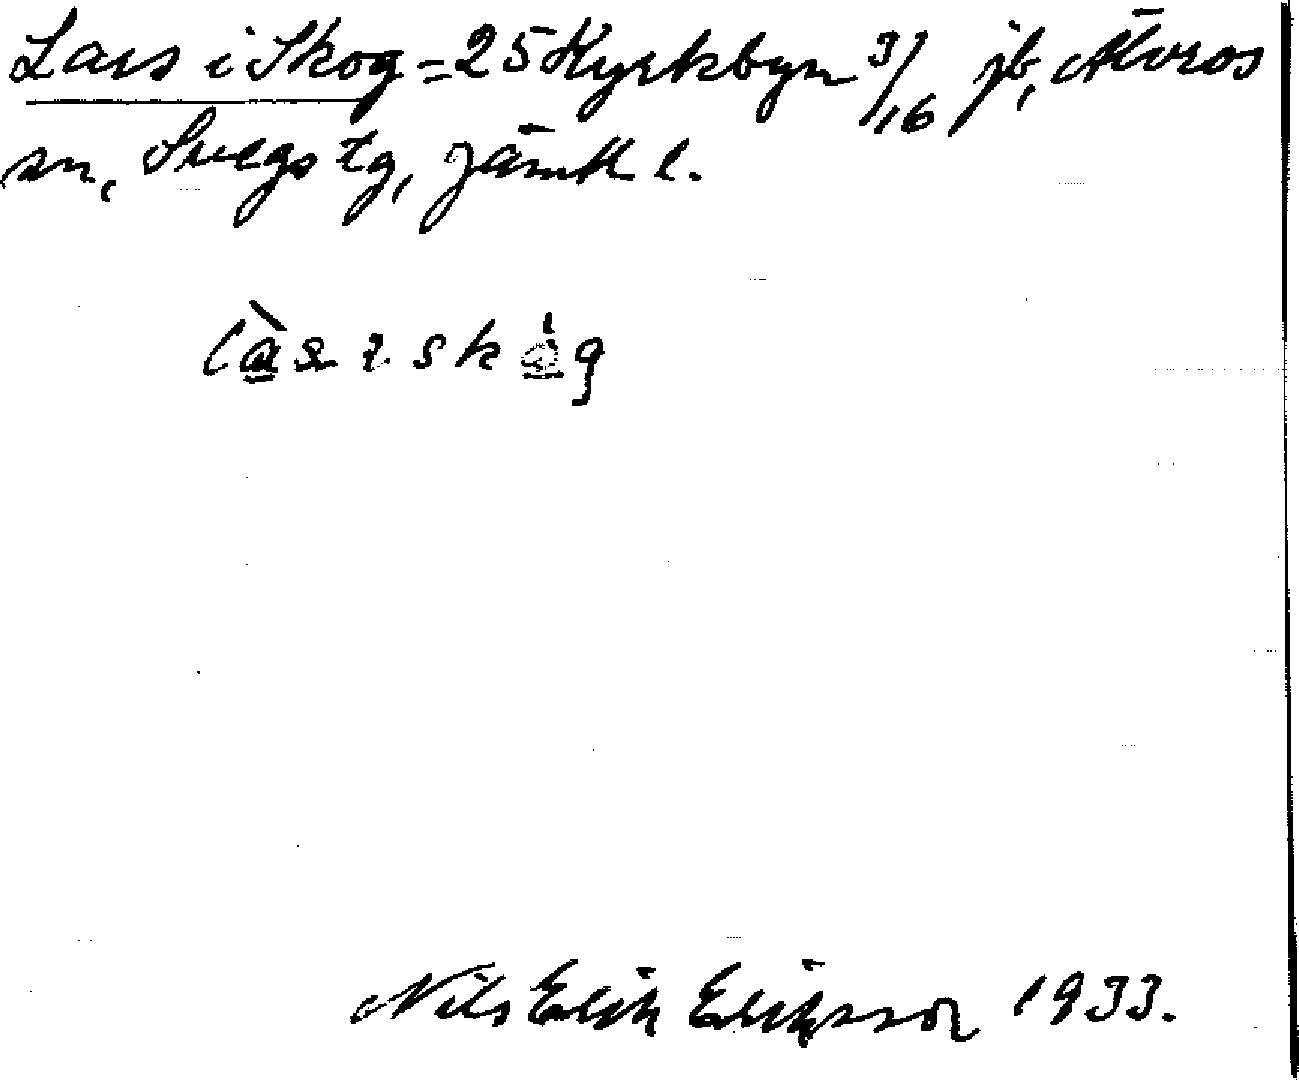 Lars i Skog = 25 Kyrkbyn 3/16 jb, Älvros
sn, Svegs tg, Jämtl l.
làs i skóg
Nils Erik Eriksson 1933.